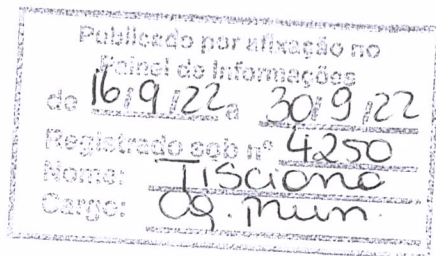 Publicado por afixação no
Painel de Informações
de 16/9/22 a 30/9/22
Registrado sob nº 4250
Nome: Tisciana
Cargo: mun.